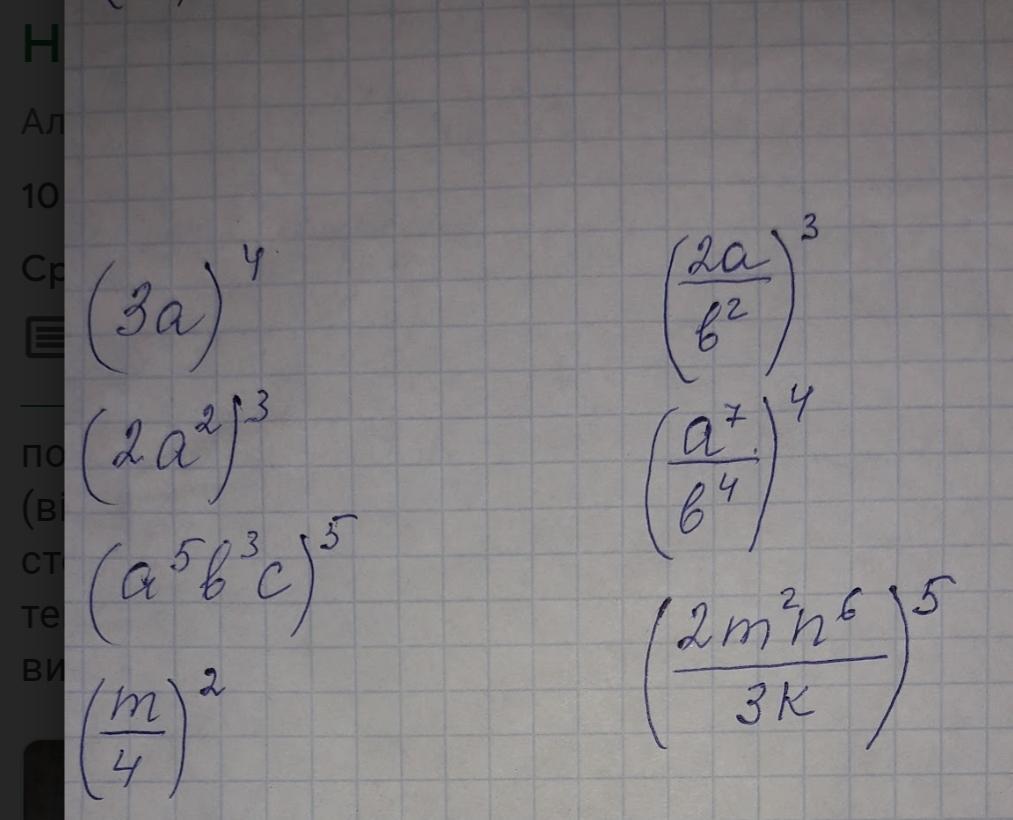 Н
Ал
10
Ср
по
(ві
ст
те
ви
(3a)^4
(2a^2)^3
(a^5 b^3 c)^5
(m/4)^2
(2a/b^2)^3
(a^7/b^4)^4
(2m^2n^6/3k)^5